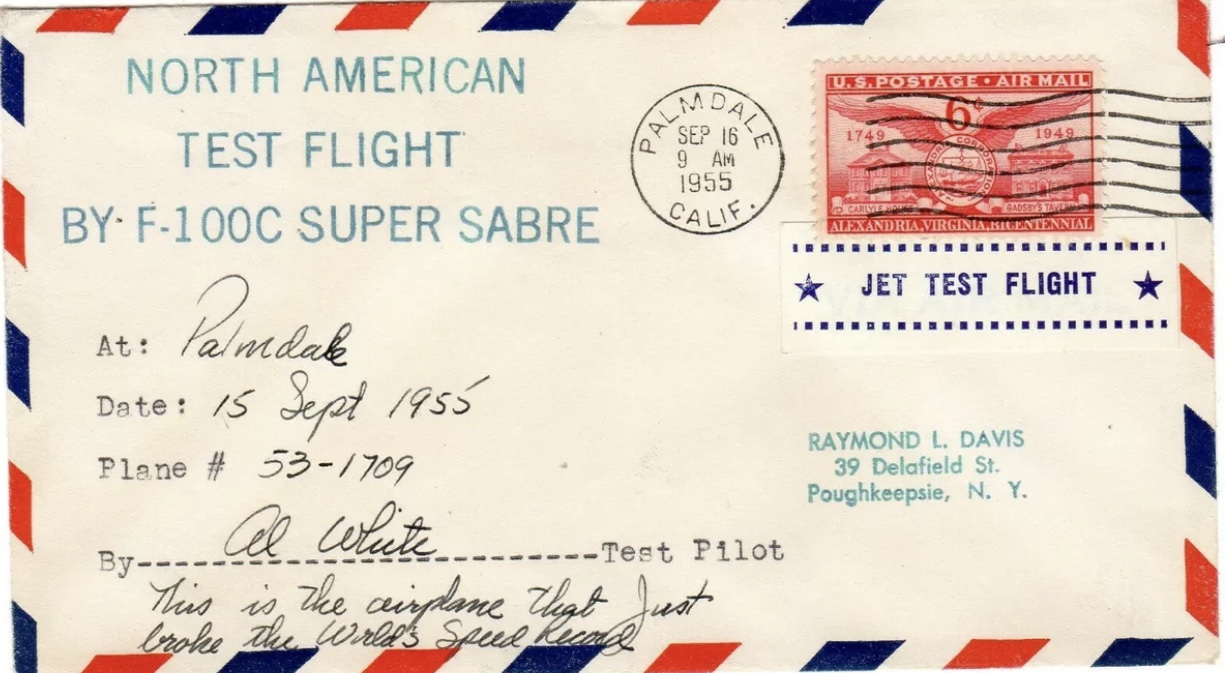 NORTH AMERICAN
TEST FLIGHT
BY F-100C SUPER SABRE
PALMDALE
SEP 16
9 AM
1955
CALIF.
U.S. POSTAGE · AIR MAIL
6¢
1749 1949
ALEXANDRIA CORPORATION
CARLYLE HOUSE GADSBY'S TAVERN
ALEXANDRIA, VIRGINIA, BICENTENNIAL
★ JET TEST FLIGHT ★
At: Palmdale
Date: 15 Sept 1955
Plane # 53-1709
By Al White Test Pilot
This is the airplane that Just
broke the World's Speed Record
RAYMOND L. DAVIS
39 Delafield St.
Poughkeepsie, N. Y.